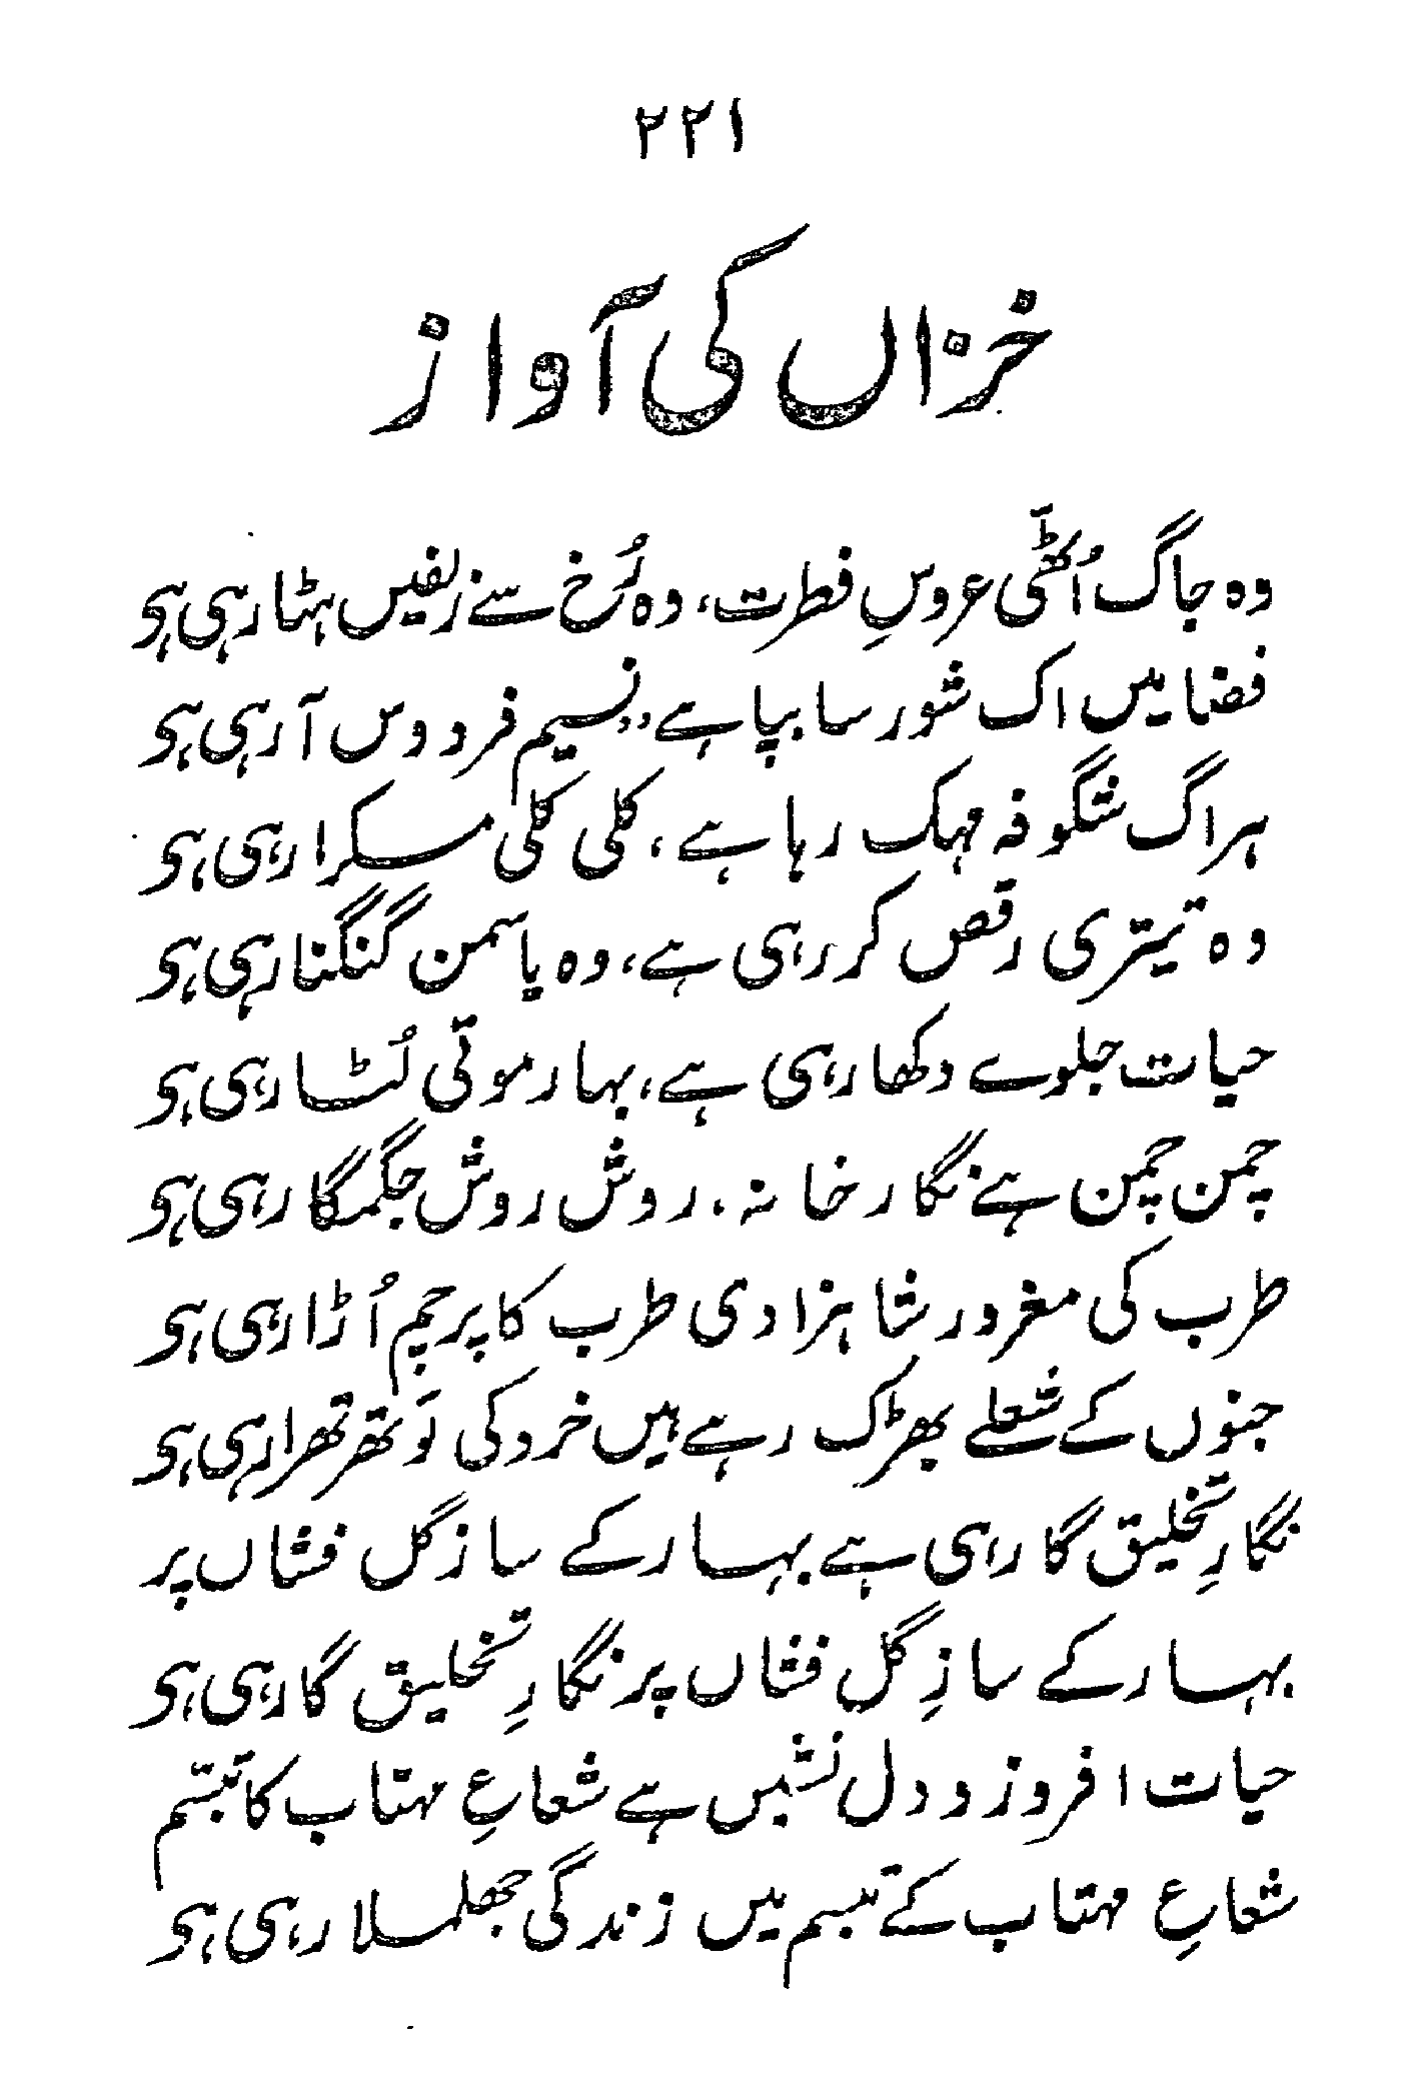 ۲۲۱
خزاں کی آواز
وہ جاگ اُٹھّی عروسِ فطرت، وہ رُخ سے زلفیں ہٹا رہی ہی
فضا میں اک شور سا بپا ہے "نسیم فردوس آ رہی ہی
ہر اگ شگوفہ مہک رہا ہے، کلی کلی مسکرا رہی ہی
وہ تیتری رقص کر رہی ہے، وہ یاسمن گنگنا رہی ہی
حیات جلوے دکھا رہی ہے، بہار موتی لُٹا رہی ہی
چمن چمن ہے نگار خانہ، روش روش جگمگا رہی ہی
طرب کی مغرور شاہزادی طرب کا پرچم اُڑا رہی ہی
جنوں کے شعلے بھڑک رہے ہیں خرد کی لَو تھرتھرا رہی ہی
نگارِ تخلیق گا رہی ہے بہار کے ساز گل فشاں پر
بہار کے سازِ گل فشاں پر نگارِ تخلیق گا رہی ہی
حیات افروز و دل نشیں ہے شعاعِ مہتاب کا تبسّم
شعاعِ مہتاب کے تبسم میں زندگی جھلملا رہی ہی